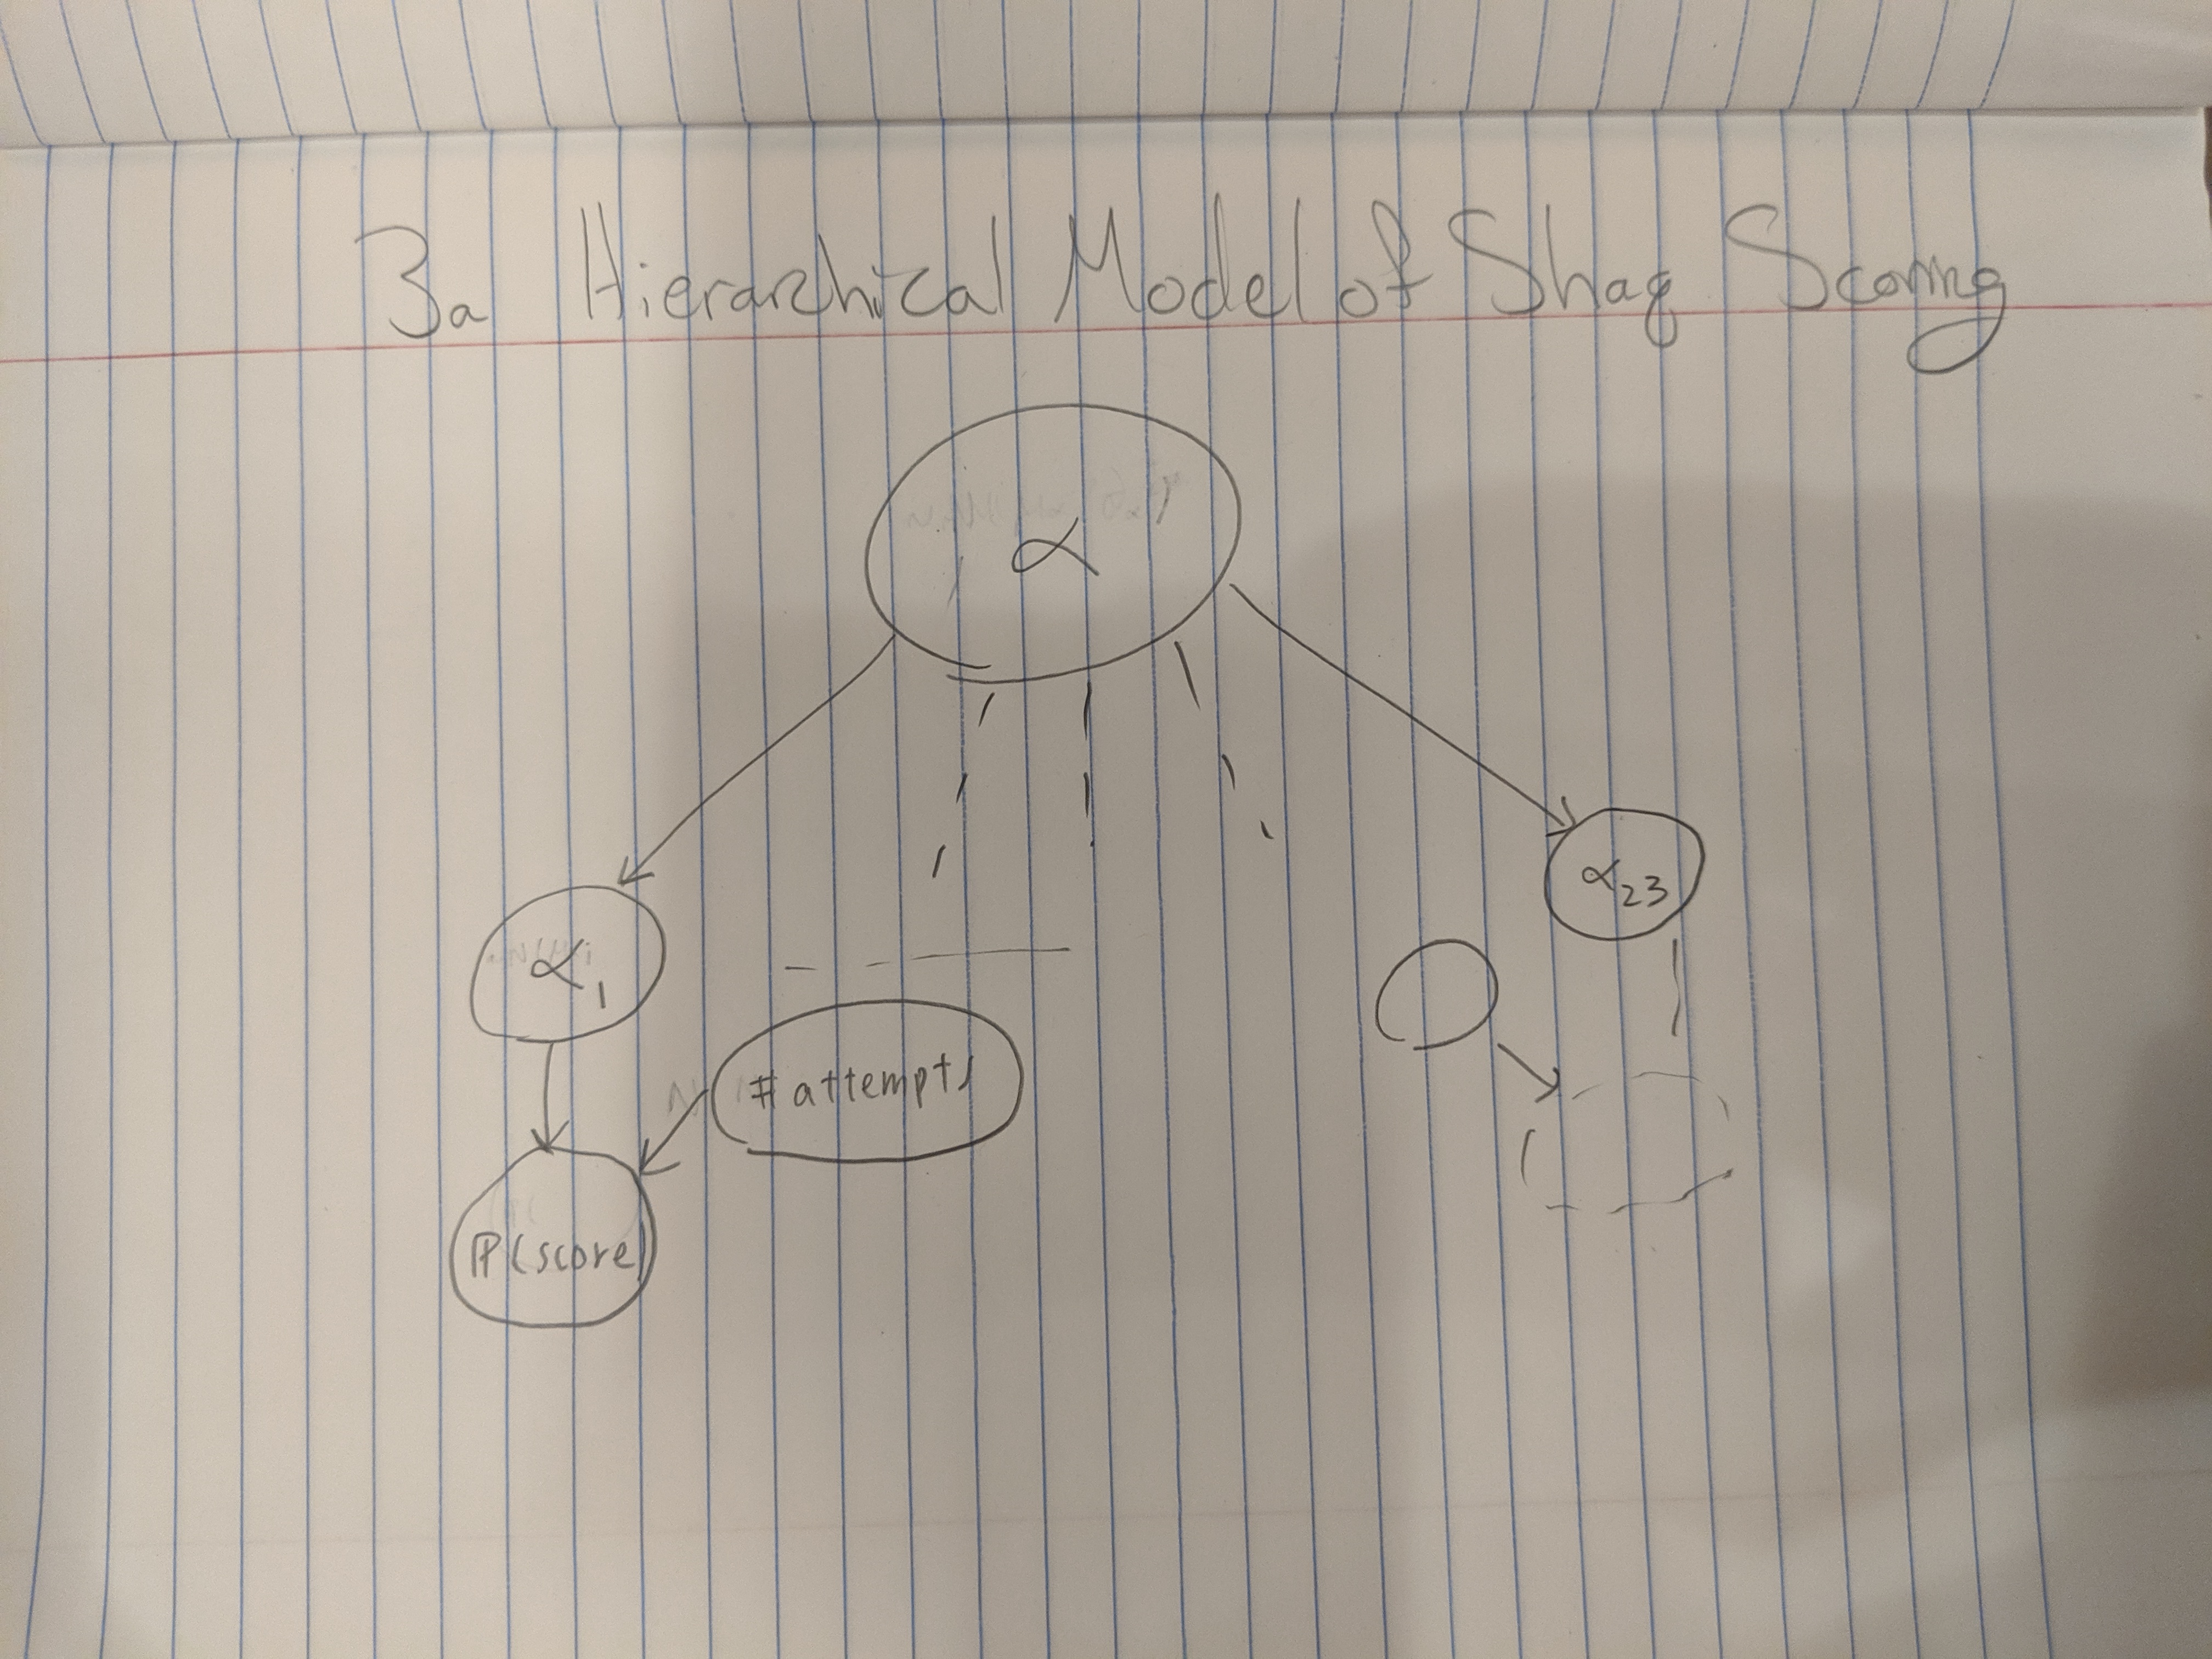 3a Hierarchical Model of Shaq Scoring
α
α₂₃
α₁
#attempts
ℙ(score)